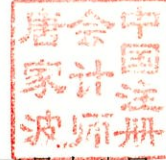 中国注册
会计师
唐家波